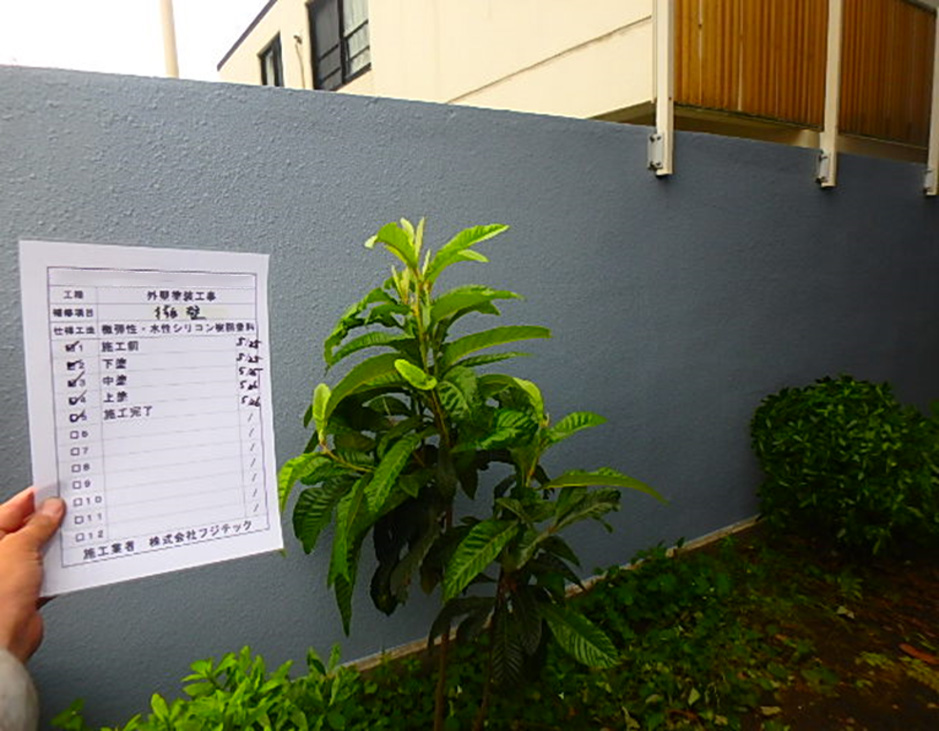 工種 外壁塗装工事
補修項目 擁壁
仕様工法 微弾性・水性シリコン樹脂塗料
1 施工前 5/25
2 下塗 5/25
3 中塗
4 上塗 5/26
5 施工完了 /
6 /
7 /
8 /
9 /
10 /
11 /
12 /
施工業者 株式会社フジテック